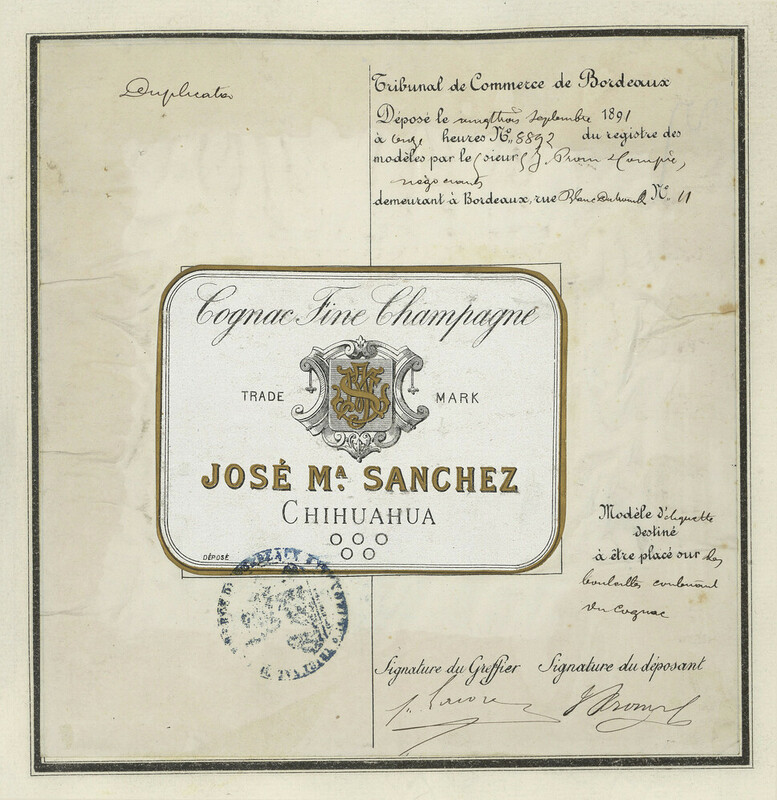 Duplicata
Tribunal de Commerce de Bordeaux
Déposé le vingt trois Septembre 1891
à onze heures N° 8892 du registre des
modèles par le sieur J. Prom & Compie,
négociants
demeurant à Bordeaux, rue Blanc Dutrouilh N° 11
Cognac Fine Champagne
TRADE MARK
JOSÉ Mª. SANCHEZ
CHIHUAHUA
DÉPOSÉ
Modèle d'étiquette
destiné
à être placé sur des
bouteilles contenant
du cognac
Signature du Greffier Signature du déposant